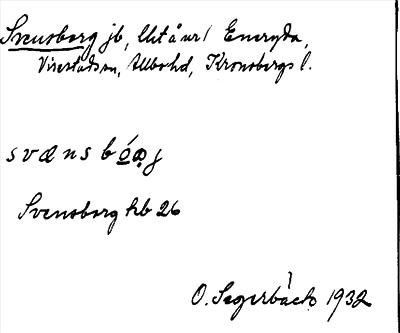 Svensberg jb, Utånr 1 Eneryda,
Virestads sn, Allbo hd, Kronobergs l.
svænsbóæj
Svensberg hb 26
O. Segerbäck 1932